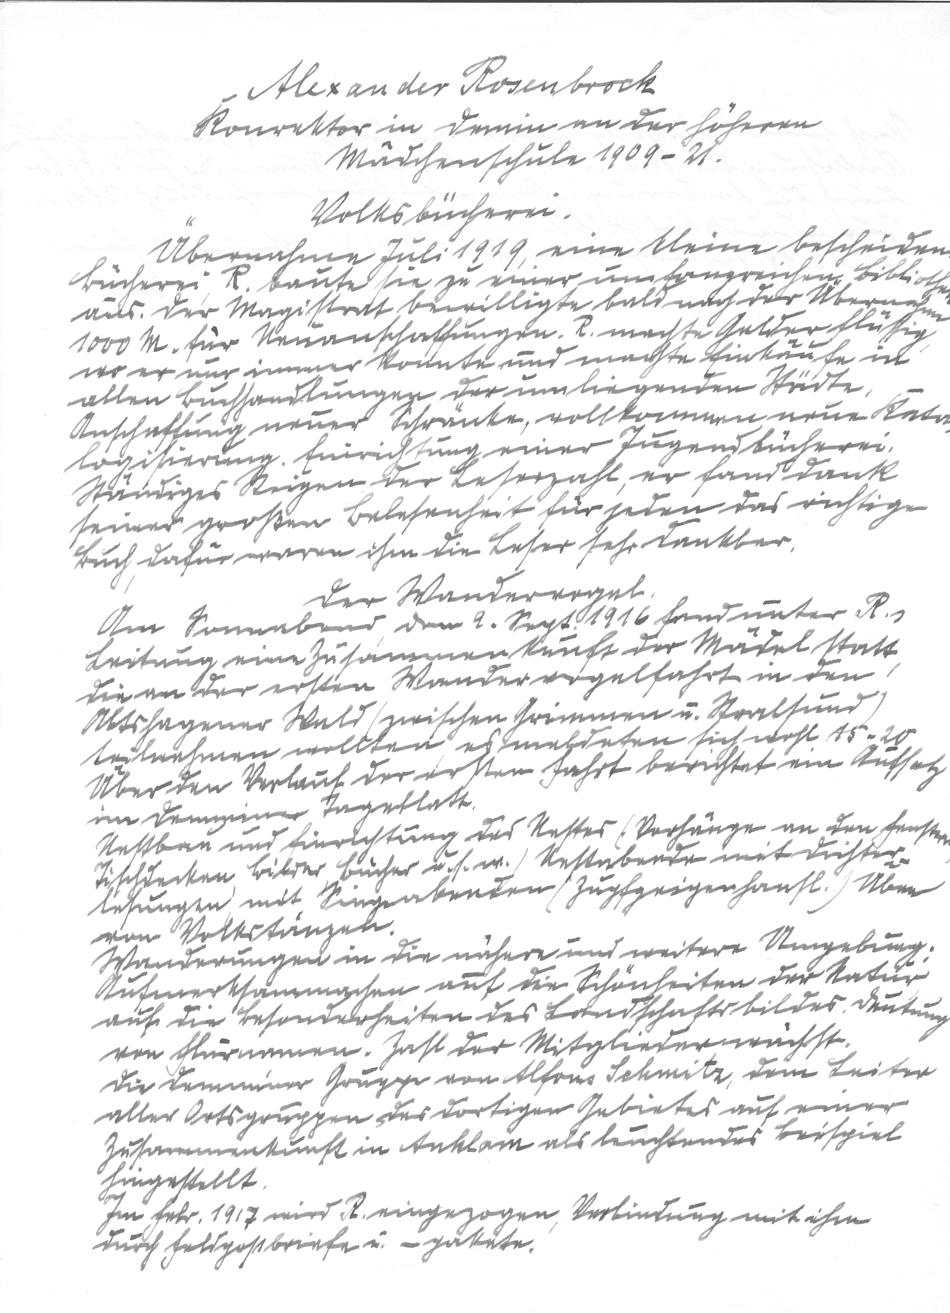 Alexander Rosenbrock
Konrektor in Demmin an der höheren
Mädchenschule 1909-21.
Volksbücherei.
Übernahme Juli 1919, eine kleine bescheidene
Bücherei, R. baute sie zu einer umfangreichen Bibliothek
aus. Der Magistrat bewilligte bald nach der Übernahme
1000 M. für Neuanschaffungen. R. machte Gelder flüssig,
wo er nur immer konnte und machte Einkäufe in
allen Buchhandlungen der umliegenden Städte.
Anschaffung neuer Schränke, vollkommen neue Kata-
logisierung. Einrichtung einer Jugendbücherei.
Ständiges Steigen der Leserzahl, er fand dank
seiner großen Belesenheit für jeden das richtige
Buch, dafür waren ihm die Leser sehr dankbar.
Der Wandervogel.
Am Sonnabend dem 9. Sept. 1916 fand unter R.s
Leitung eine Zusammenkunft der Mädel statt,
die an der ersten Wandervogelfahrt in den
Abtshagener Wald (zwischen Grimmen u. Stralsund)
teilnehmen wollten es meldeten sich wohl 15-20
Über den Verlauf der ersten Fahrt berichtet ein Aufsatz
im Demminer Tageblatt.
Nestbau und Einrichtung des Nestes (Vorhänge an den Fenstern
Tischdecken, Bilder, Bücher u.s.w.) Nestabende mit Dichter-
lesungen, mit Singeabenden (Zupfgeigenhansl.) Üben
von Volkstänzen.
Wanderungen in die nähere und weitere Umgebung.
Aufmerksammachen auf die Schönheiten der Natur
auf die Besonderheiten des Landschaftsbildes. Deutung
von Flurnamen. Zahl der Mitglieder wächst.
Die Demminer Gruppe von Alfons Schmitz, dem Leiter
aller Ortsgruppen des dortigen Gebietes auf einer
Zusammenkunft in Anklam als leuchtendes Beispiel
hingestellt.
Im Febr. 1917 wird R. eingezogen, Verbindung mit ihm
durch Feldpostbriefe u. -pakete.